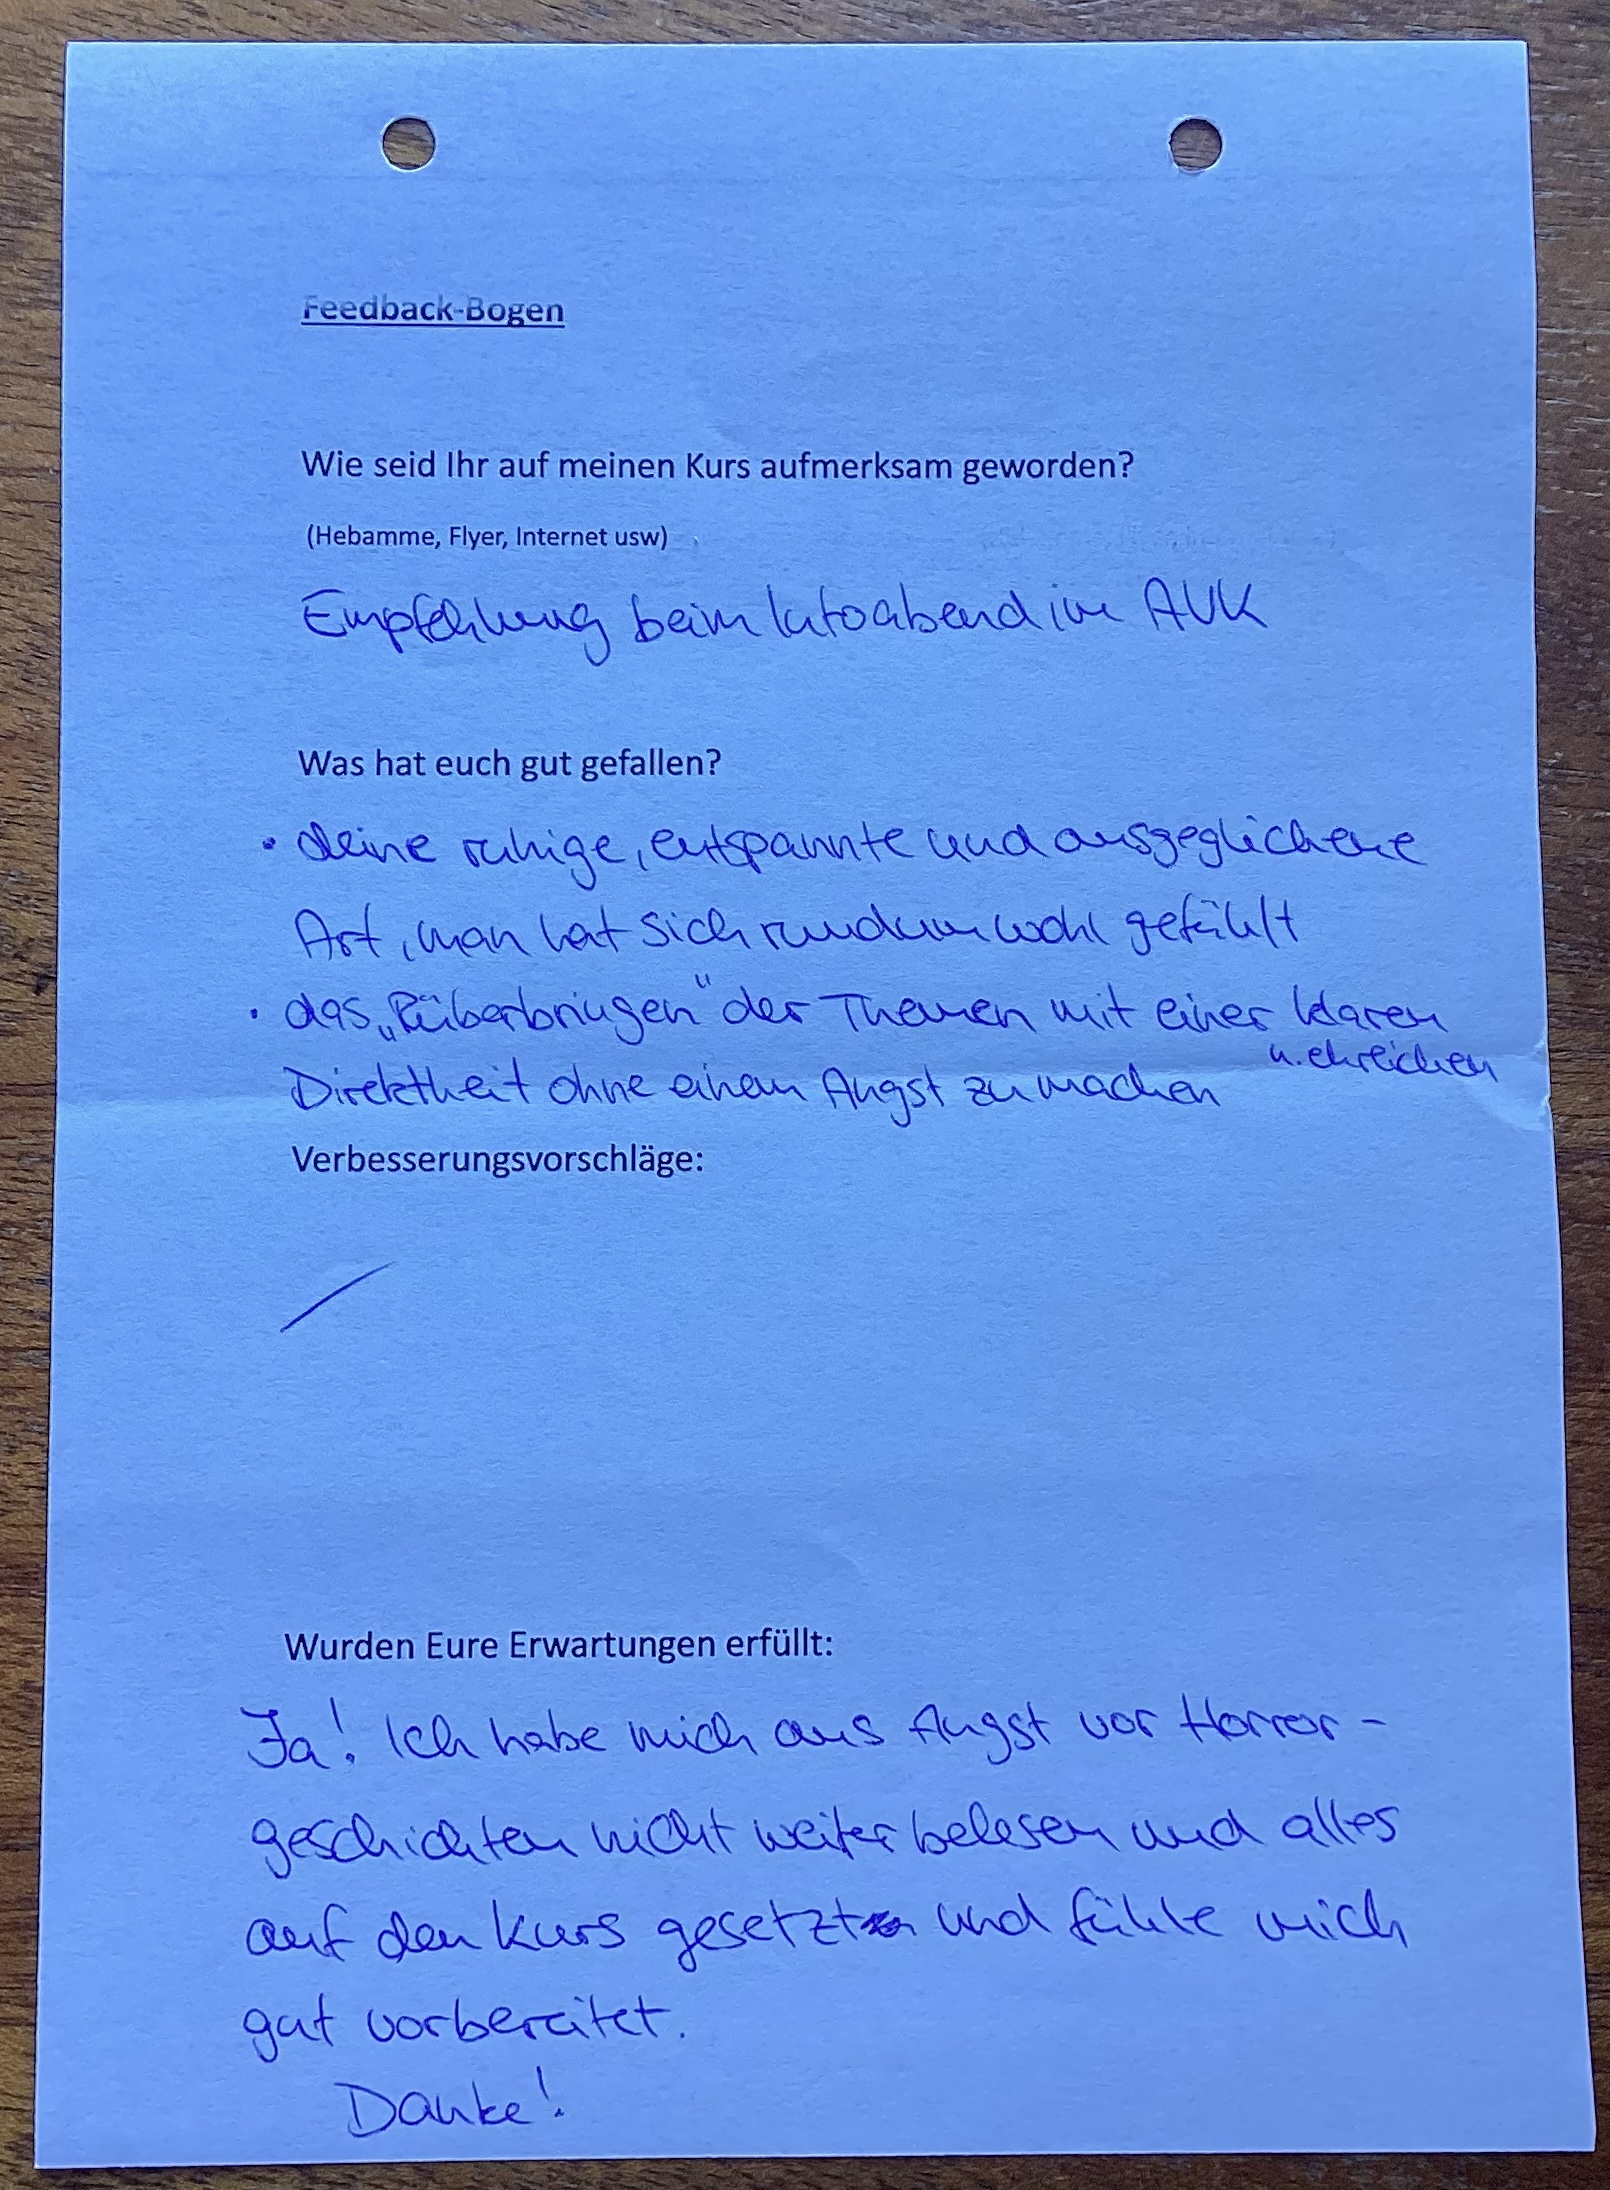 Feedback-Bogen
Wie seid Ihr auf meinen Kurs aufmerksam geworden?
(Hebamme, Flyer, Internet usw)
Empfehlung beim Infoabend im AVK
Was hat euch gut gefallen?
• deine ruhige, entspannte und ausgeglichene
Art, man hat sich rundum wohl gefühlt
• das „Rüberbringen" der Themen mit einer klaren
u. ehrlichen
Direktheit ohne einem Angst zu machen
Verbesserungsvorschläge:
/
Wurden Eure Erwartungen erfüllt:
Ja! Ich habe mich aus Angst vor Horror-
geschichten nicht weiter belesen und alles
auf den Kurs gesetzt und fühle mich
gut vorbereitet.
Danke!